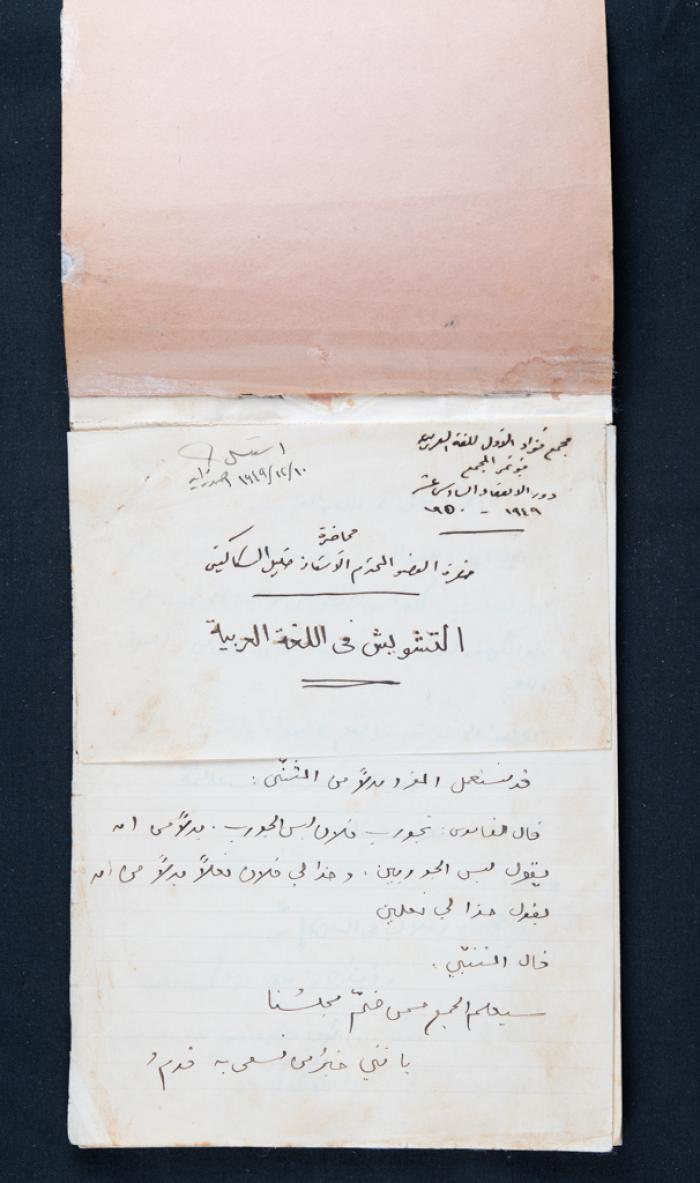 مجمع فؤاد الأول للغة العربية
مؤتمر المجمع
دور الانعقاد السادس عشر
١٩٤٩ - ١٩٥٠
١٩٤٩/١٢/١٠
محاضرة
حضرة العضو المحترم الأستاذ خليل السكاكيني
التشويش في اللغة العربية
قد يستعمل المفرد بدلاً من المثنّى:
قال القاموس: تجورب فلان لبس الجورب. بدلاً من ان
يقول لبس الجوربين. وحذا لي فلان نعلاً بدلاً من ان
يقول حذا لي نعلين
قال المتنبّي.
سيعلم الجمع ممن ضمّ مجلسُنا
بانني خيرُ من تسعى به قدمُ